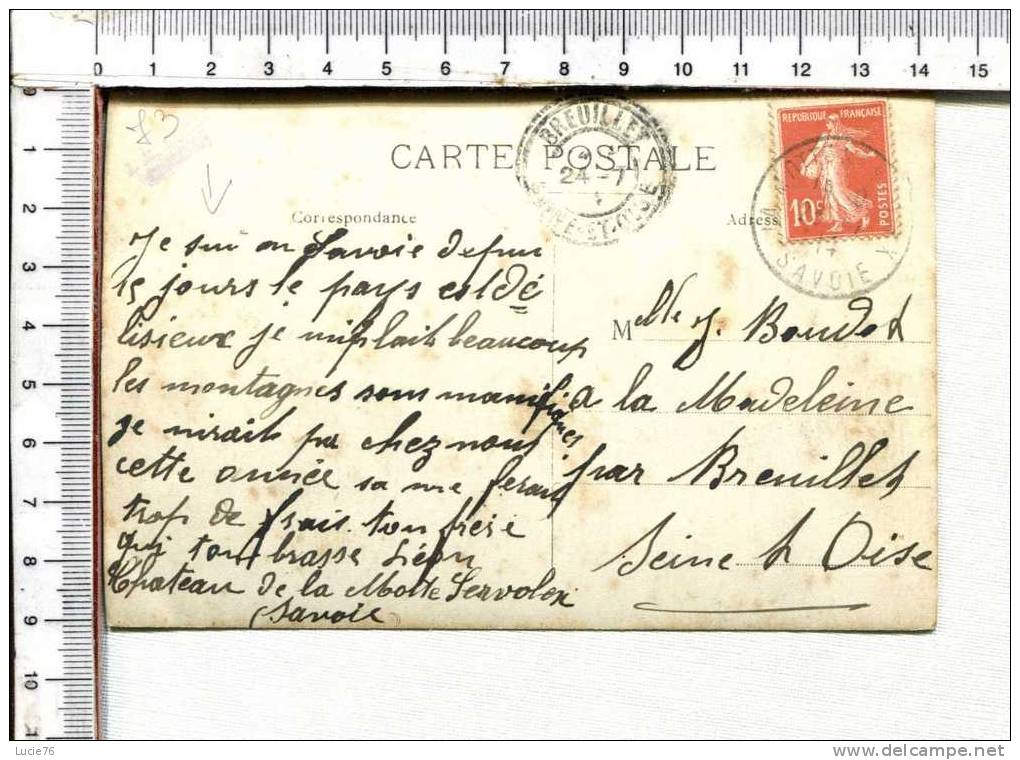 0 1 2 3 4 5 6 7 8 9 10 11 12 13 14 15
1
2
3
4
5
6
7
8
9
10
83
CARTE POSTALE
BREUILLET
24-7
SEINE-ET-OISE
REPUBLIQUE FRANÇAISE
10c
POSTES
SAVOIE
Correspondance
Adresse
Je sui en Savoie depui
15 jours le pays est dé
lisieux je mi plait beaucoup
les montagnes sons manifiques
je nirait pa chez nous
cette année sa me ferait
trop de frais ton frère
qui tombrasse Léon
Chateau de la Motte Servolex
Savoie
Melle J. Boudot
a la Madeleine
par Breuillet
Seine & Oise
Lucie76
http://www.delcampe.net